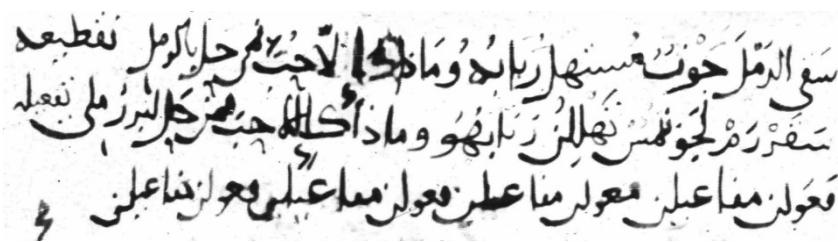 سقى الرمل جون مستهل ربابه وما ذاك إلا حب من حل بالرمل تقطيعه
سقررم لجونمس تهللن ربابهو وما ذا ك الا حب بمن حل لبررملي تفعيله
فعولن مفاعيلن فعولن مفاعلن فعولن مفاعيلن فعولن مفاعيلن